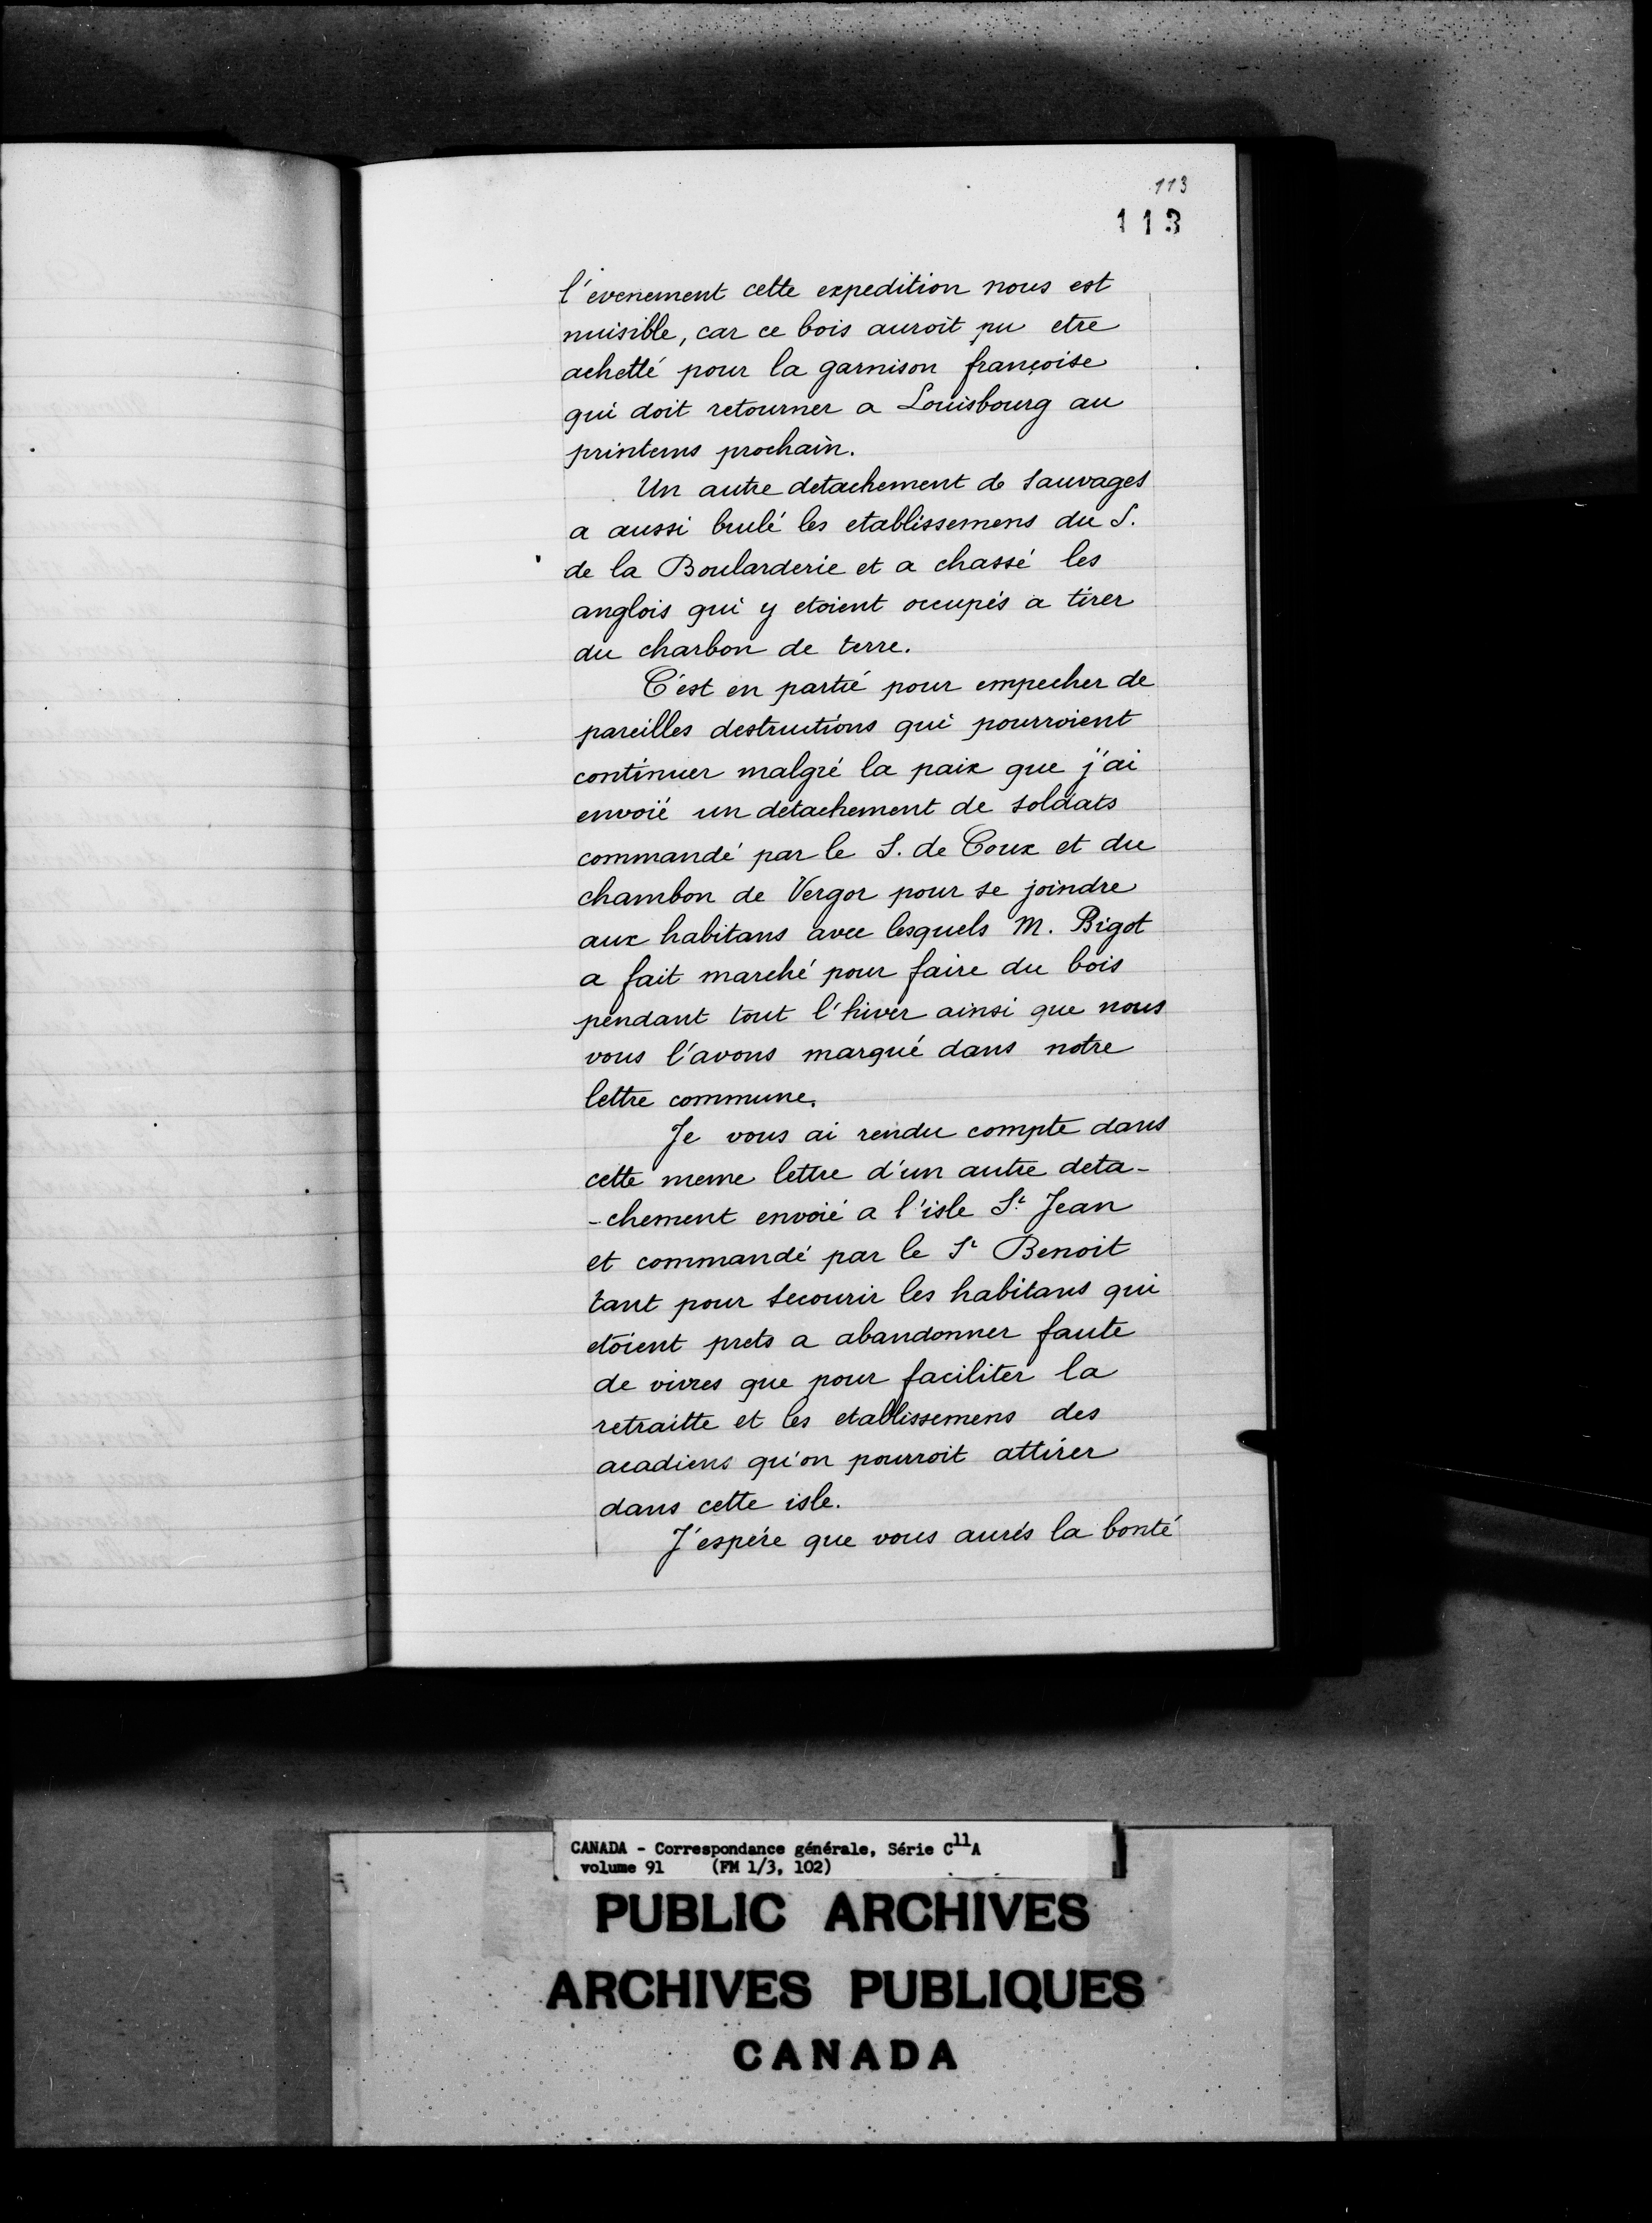 113
113
l'evenement cette expedition nous est
nuisible, car ce bois auroit pu etre
achetté pour la garnison françoise
qui doit retourner a Louisbourg au
printems prochain.
Un autre detachement de sauvages
a aussi brulé les etablissemens du S.
de la Boularderie et a chassé les
anglois qui y etoient occupés a tirer
du charbon de terre.
C'est en partie pour empecher de
pareilles destructions qui pourroient
continuer malgré la paix que j'ai
envoié un detachement de soldats
commandé par le S. de Coux et du
chambon de Vergor pour se joindre
aux habitans avec lesquels M. Bigot
a fait marché pour faire du bois
pendant tout l'hiver ainsi que nous
vous l'avons marqué dans notre
lettre commune.
Je vous ai rendu compte dans
cette meme lettre d'un autre deta-
-chement envoié a l'isle St Jean
et commandé par le Sr Benoit
tant pour secourir les habitans qui
etoient prets a abandonner faute
de vivres que pour faciliter la
retraitte et les etablissemens des
acadiens qu'on pourroit attirer
dans cette isle.
J'espére que vous aurés la bonté
CANADA - Correspondance générale, Série C11A
volume 91 (FM 1/3, 102)
PUBLIC ARCHIVES
ARCHIVES PUBLIQUES
CANADA